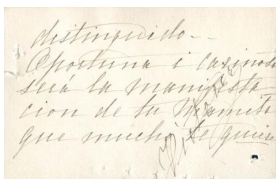 distinguido..
Oportuna i cariñosa
será la manifesta
cion de tu Mamita
que mucho te quiere